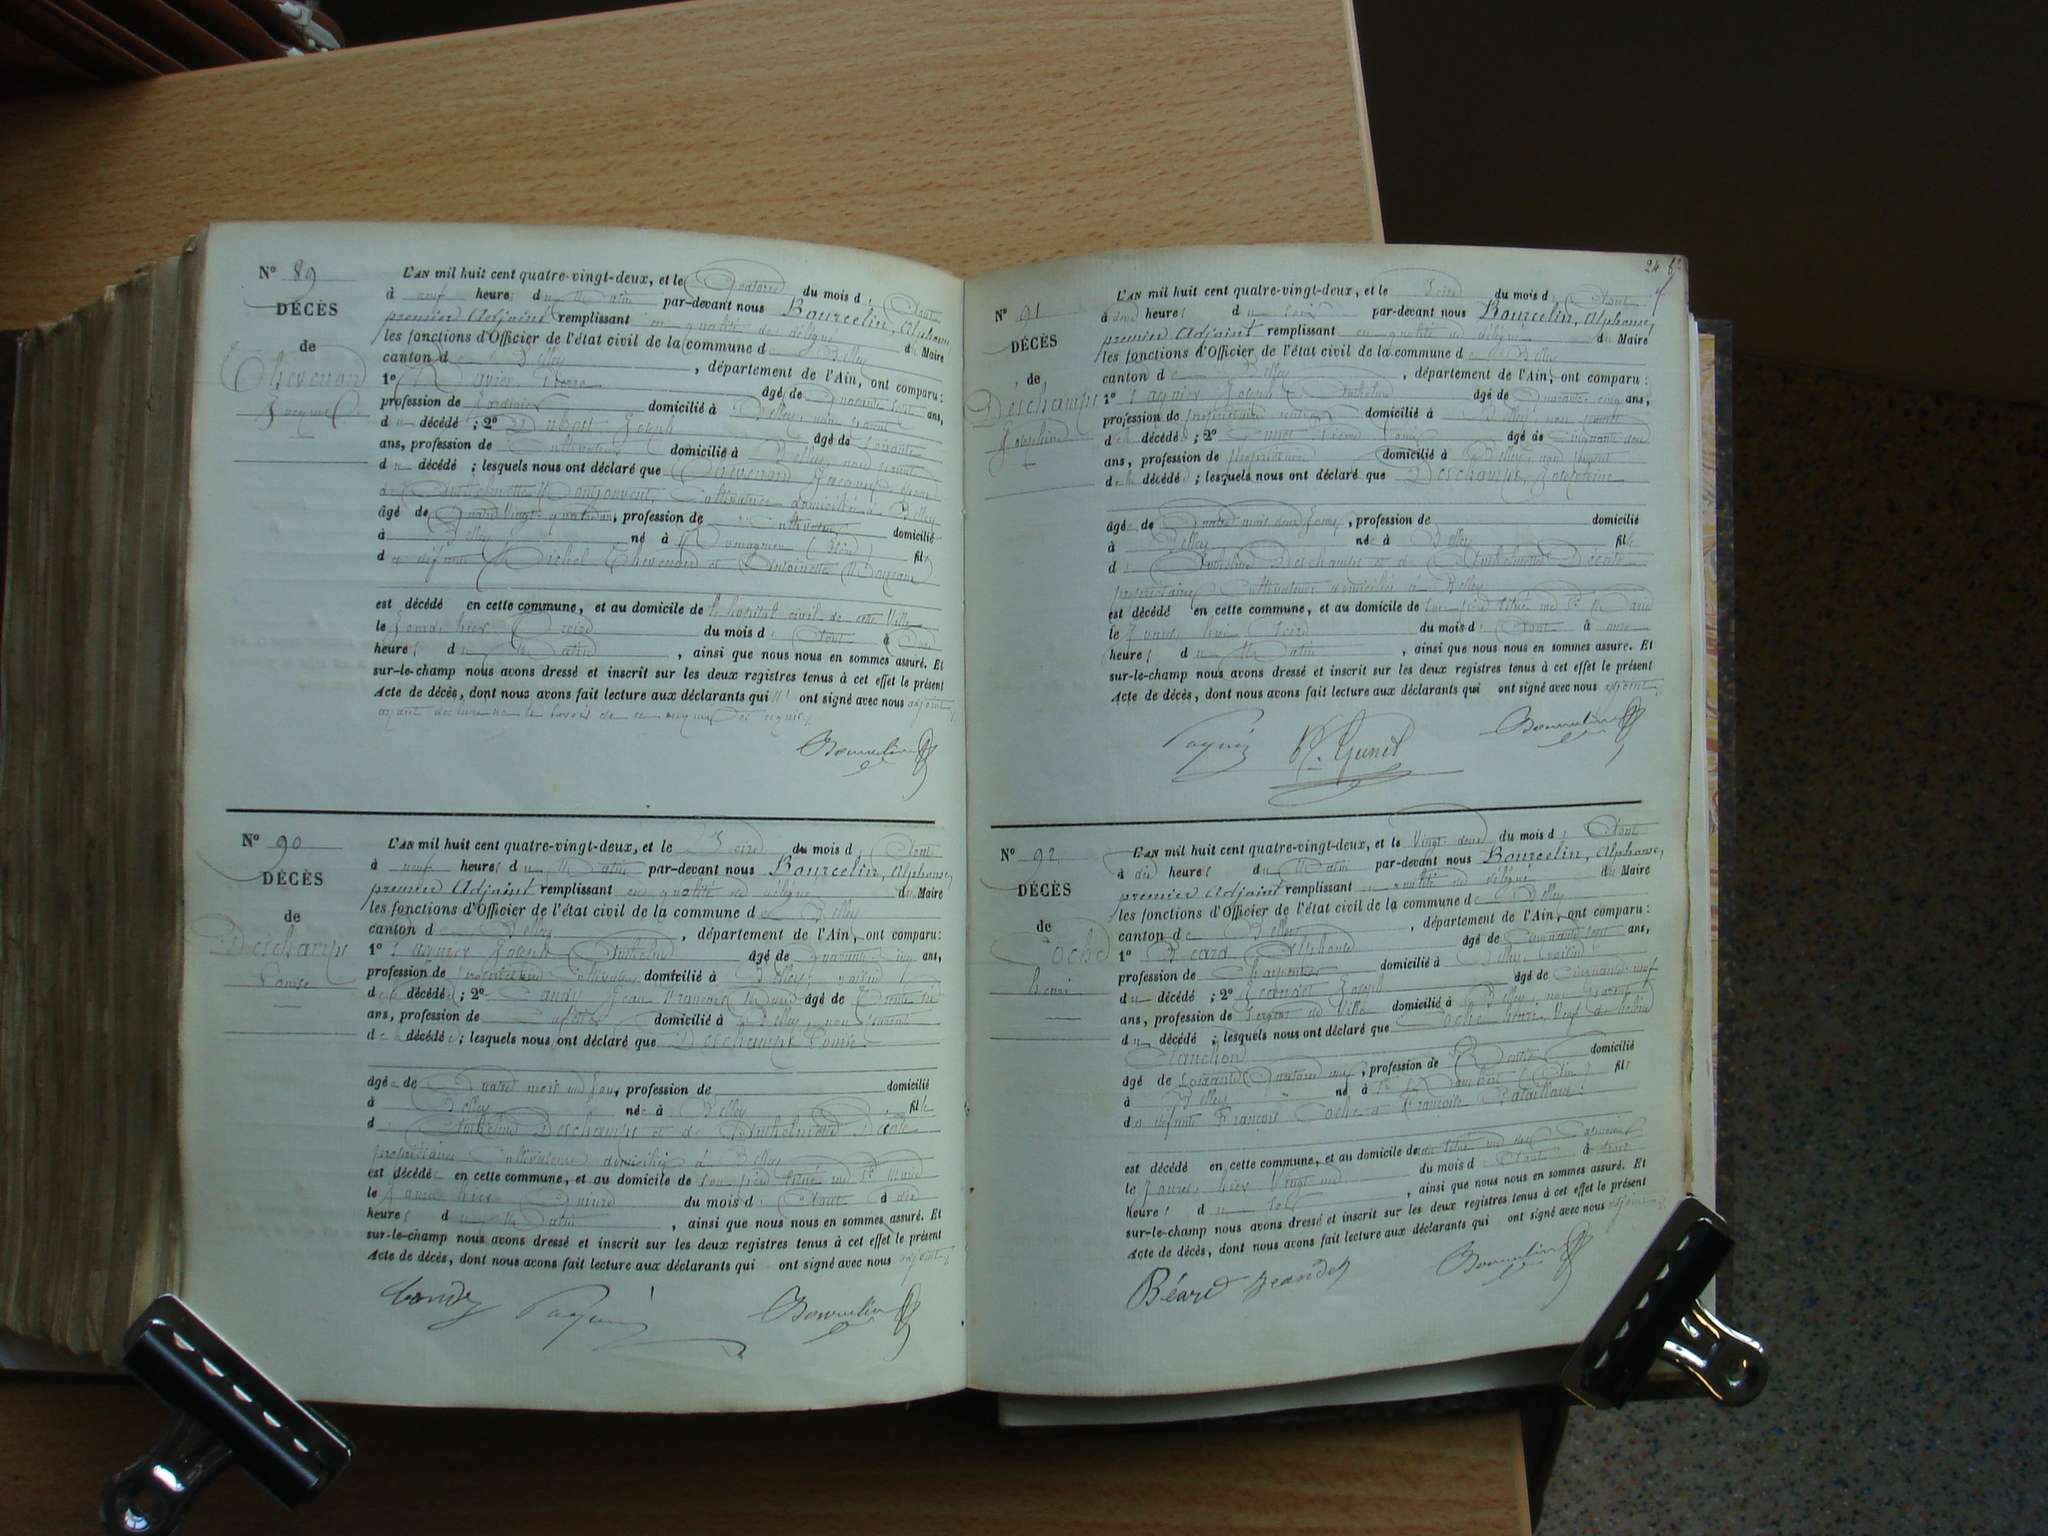 N° 89
DÉCÈS
de
Chevenard
Jacques
L'AN mil huit cent quatre-vingt-deux, et le Quatorze du mois d' Août
à neuf heures du Matin par-devant nous Bourcelin, Alphonse,
premier Adjoint remplissant en qualité de délégué du Maire
les fonctions d'Officier de l'état civil de la commune de Belley
canton de Belley, département de l'Ain, ont comparu :
1° Pierre âgé de Quarante ans,
profession de Jardinier domicilié à Belley, non parent
du décédé ; 2° Dubout Joseph âgé de Soixante
ans, profession de Cultivateur domicilié à Belley non parent
du décédé ; lesquels nous ont déclaré que Chevenard Jacques
Cultivatrice domiciliée à Belley
âgé de Quatre-Vingt-quatre ans, profession de Cultivateur domicilié
à Belley né à fils
de défunts Michel Chevenard et Antoinette
est décédé en cette commune, et au domicile de l'hôpital civil de cette Ville
le jour d'hier Treize du mois d' Août à
heures du Matin, ainsi que nous nous en sommes assuré. Et
sur-le-champ nous avons dressé et inscrit sur les deux registres tenus à cet effet le présent
Acte de décès, dont nous avons fait lecture aux déclarants qui n' ont signé avec nous adjoint,
ayant déclaré ne le savoir de ce enquis et requis,
Bourcelin
N° 90
DÉCÈS
de
Deschamps
Louise
L'AN mil huit cent quatre-vingt-deux, et le Seize du mois d' Août
à neuf heures du Matin par-devant nous Bourcelin, Alphonse,
premier Adjoint remplissant en qualité de délégué du Maire
les fonctions d'Officier de l'état civil de la commune de Belley
canton de Belley, département de l'Ain, ont comparu :
1° Joseph Anthelme âgé de Quarante cinq ans,
profession de cultivateur domicilié à Belley, voisin
de la décédée ; 2° Candy Jean François Marie âgé de Trente six
ans, profession de domicilié à Belley, non parent
de la décédée ; lesquels nous ont déclaré que Deschamps Louise
âgée de Quatre mois un jour, profession de domicilié
à Belley née à Belley, fille
d' Anthelme Deschamps et d' Anthelmette Décole
propriétaires cultivateurs domiciliés à Belley
est décédée en cette commune, et au domicile de son père situé rue Ste Marie
le jour d'hier Quinze du mois d' Août à dix
heures du Matin, ainsi que nous nous en sommes assuré. Et
sur-le-champ nous avons dressé et inscrit sur les deux registres tenus à cet effet le présent
Acte de décès, dont nous avons fait lecture aux déclarants qui ont signé avec nous adjoint,
Candy Bourcelin
24
N° 91
DÉCÈS
de
Deschamps
Joséphine
L'AN mil huit cent quatre-vingt-deux, et le Seize du mois d' Août
à deux heures du soir par-devant nous Bourcelin, Alphonse,
premier Adjoint remplissant en qualité de délégué du Maire
les fonctions d'Officier de l'état civil de la commune de Belley
canton de Belley, département de l'Ain, ont comparu :
1° Joseph Anthelme âgé de Quarante-cinq ans,
profession de propriétaire rentier domicilié à Belley non parent
de la décédée ; 2° Pierre Louis âgé de Cinquante deux
ans, profession de propriétaire domicilié à Belley, non parent
de la décédée ; lesquels nous ont déclaré que Deschamps, Joséphine
âgée de Quatre mois deux jours, profession de domicilié
à Belley née à Belley fille
d' Anthelme Deschamps et d' Anthelmette Décole
propriétaires Cultivateurs domiciliés à Belley
est décédé en cette commune, et au domicile de son père situé rue Ste Marie
le jour Seize du mois d' Août à onze
heures du Matin, ainsi que nous nous en sommes assuré. Et
sur-le-champ nous avons dressé et inscrit sur les deux registres tenus à cet effet le présent
Acte de décès, dont nous avons fait lecture aux déclarants qui ont signé avec nous adjoint,
Bourcelin
N° 92
DÉCÈS
de
Coche
Henri
L'AN mil huit cent quatre-vingt-deux, et le Vingt-deux du mois d' Août
à dix heures du Matin par-devant nous Bourcelin, Alphonse,
premier Adjoint remplissant en qualité de délégué du Maire
les fonctions d'Officier de l'état civil de la commune de Belley
canton de Belley, département de l'Ain, ont comparu :
1° Béard Alphonse âgé de Cinquante sept ans,
profession de Charpentier domicilié à Belley, voisin
du décédé ; 2° Jeandet Joseph âgé de Cinquante-neuf
ans, profession de Sergent de Ville domicilié à Belley, non parent
du décédé ; lesquels nous ont déclaré que Coche Henri, Veuf de
Planchon
âgé de Soixante Quatorze ans, profession de Rentier domicilié
à Belley né à fils
de défunts François Coche et Françoise Bataillard
est décédé en cette commune, et au domicile de situé rue des Capucins
le jour d'hier Vingt un du mois d' Août à
heures du Soir, ainsi que nous nous en sommes assuré. Et
sur-le-champ nous avons dressé et inscrit sur les deux registres tenus à cet effet le présent
Acte de décès, dont nous avons fait lecture aux déclarants qui ont signé avec nous adjoint,
Béard Jeandet Bourcelin